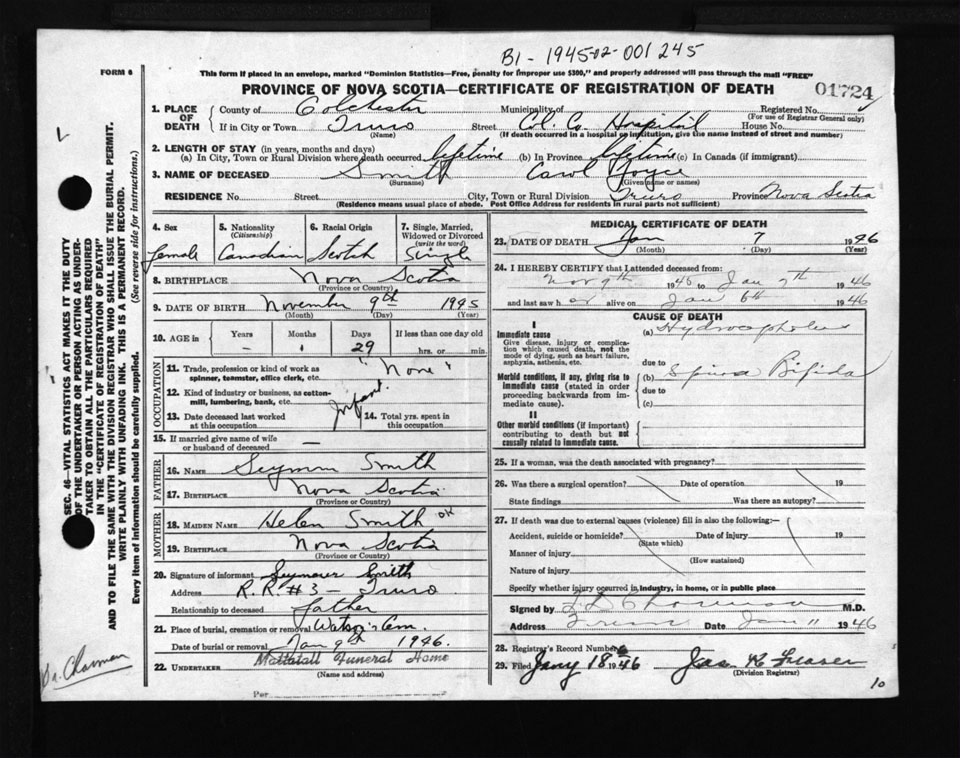 B1 - 1945-02-001245
FORM 6
This form if placed in an envelope, marked "Dominion Statistics—Free, penalty for improper use $300," and properly addressed will pass through the mail "FREE"
PROVINCE OF NOVA SCOTIA—CERTIFICATE OF REGISTRATION OF DEATH
01724
1. PLACE OF DEATH County of Colchester Municipality of Registered No.
(For use of Registrar General only)
If in City or Town Truro Street Col. Co. Hospital House No.
(Name) (If death occurred in a hospital or institution, give the name instead of street and number)
2. LENGTH OF STAY (in years, months and days)
(a) In City, Town or Rural Division where death occurred lifetime (b) In Province lifetime (c) In Canada (if immigrant)
3. NAME OF DECEASED Smith Carol Joyce
(Surname) (Given name or names)
RESIDENCE No. Street City, Town or Rural Division Truro Province Nova Scotia
(Residence means usual place of abode. Post Office Address for residents in rural parts not sufficient)
4. Sex 5. Nationality (Citizenship) 6. Racial Origin 7. Single, Married, Widowed or Divorced (write the word)
female Canadian Scotch Single
8. BIRTHPLACE Nova Scotia
(Province or Country)
9. DATE OF BIRTH November 9th 1945
(Month) (Day) (Year)
10. AGE in Years Months Days If less than one day
1 29 hrs. or min.
OCCUPATION
11. Trade, profession or kind of work as spinner, teamster, office clerk, etc. "None"
12. Kind of industry or business, as cotton-mill, lumbering, bank, etc. Infant
13. Date deceased last worked at this occupation 14. Total yrs. spent in this occupation
15. If married give name of wife or husband of deceased —
FATHER
16. NAME Seymour Smith
17. BIRTHPLACE Nova Scotia
(Province or Country)
MOTHER
18. MAIDEN NAME Helen Smith OK
19. BIRTHPLACE Nova Scotia
(Province or Country)
20. Signature of informant Seymour Smith
Address R.R. #3 - Truro
Relationship to deceased father
21. Place of burial, cremation or removal Watson's Cem.
Date of burial or removal Jan 9th 1946.
22. UNDERTAKER Mattatall Funeral Home
(Name and address)
Per
MEDICAL CERTIFICATE OF DEATH
23. DATE OF DEATH Jan 7 1946
(Month) (Day)
24. I HEREBY CERTIFY that I attended deceased from:
Nov 9th 1945 to Jan 7th 1946
and last saw her alive on Jan 6th 1946
CAUSE OF DEATH
I
Immediate cause
Give disease, injury or complication which caused death, not the mode of dying, such as heart failure, asphyxia, asthenia, etc.
(a) Hydrocephalus
due to
Morbid conditions, if any, giving rise to immediate cause (stated in order proceeding backwards from immediate cause).
(b) Spina Bifida
due to
(c)
II
Other morbid conditions (if important) contributing to death but not causally related to immediate cause.
25. If a woman, was the death associated with pregnancy?
26. Was there a surgical operation? Date of operation 19
State findings Was there an autopsy?
27. If death was due to external causes (violence) fill in also the following:—
Accident, suicide or homicide? Date of injury 19
(State which)
Manner of injury
(How sustained)
Nature of injury
Specify whether injury occurred in industry, in home, or in public place
Signed by M.D.
Address Truro Date Jan 11 1946
28. Registrar's Record Number
29. Filed Jany 18 1946 Jas R Fraser
(Division Registrar)
10
Dr. Charman
SEC. 46—VITAL STATISTICS ACT MAKES IT THE DUTY
OF THE UNDERTAKER OR PERSON ACTING AS UNDER-
TAKER TO OBTAIN ALL THE PARTICULARS REQUIRED
IN THE "CERTIFICATE OF REGISTRATION OF DEATH"
AND TO FILE THE SAME WITH THE DIVISION REGISTRAR WHO SHALL ISSUE THE BURIAL PERMIT.
WRITE PLAINLY WITH UNFADING INK. THIS IS A PERMANENT RECORD.
Every item of information should be carefully supplied. (See reverse side for instructions.)